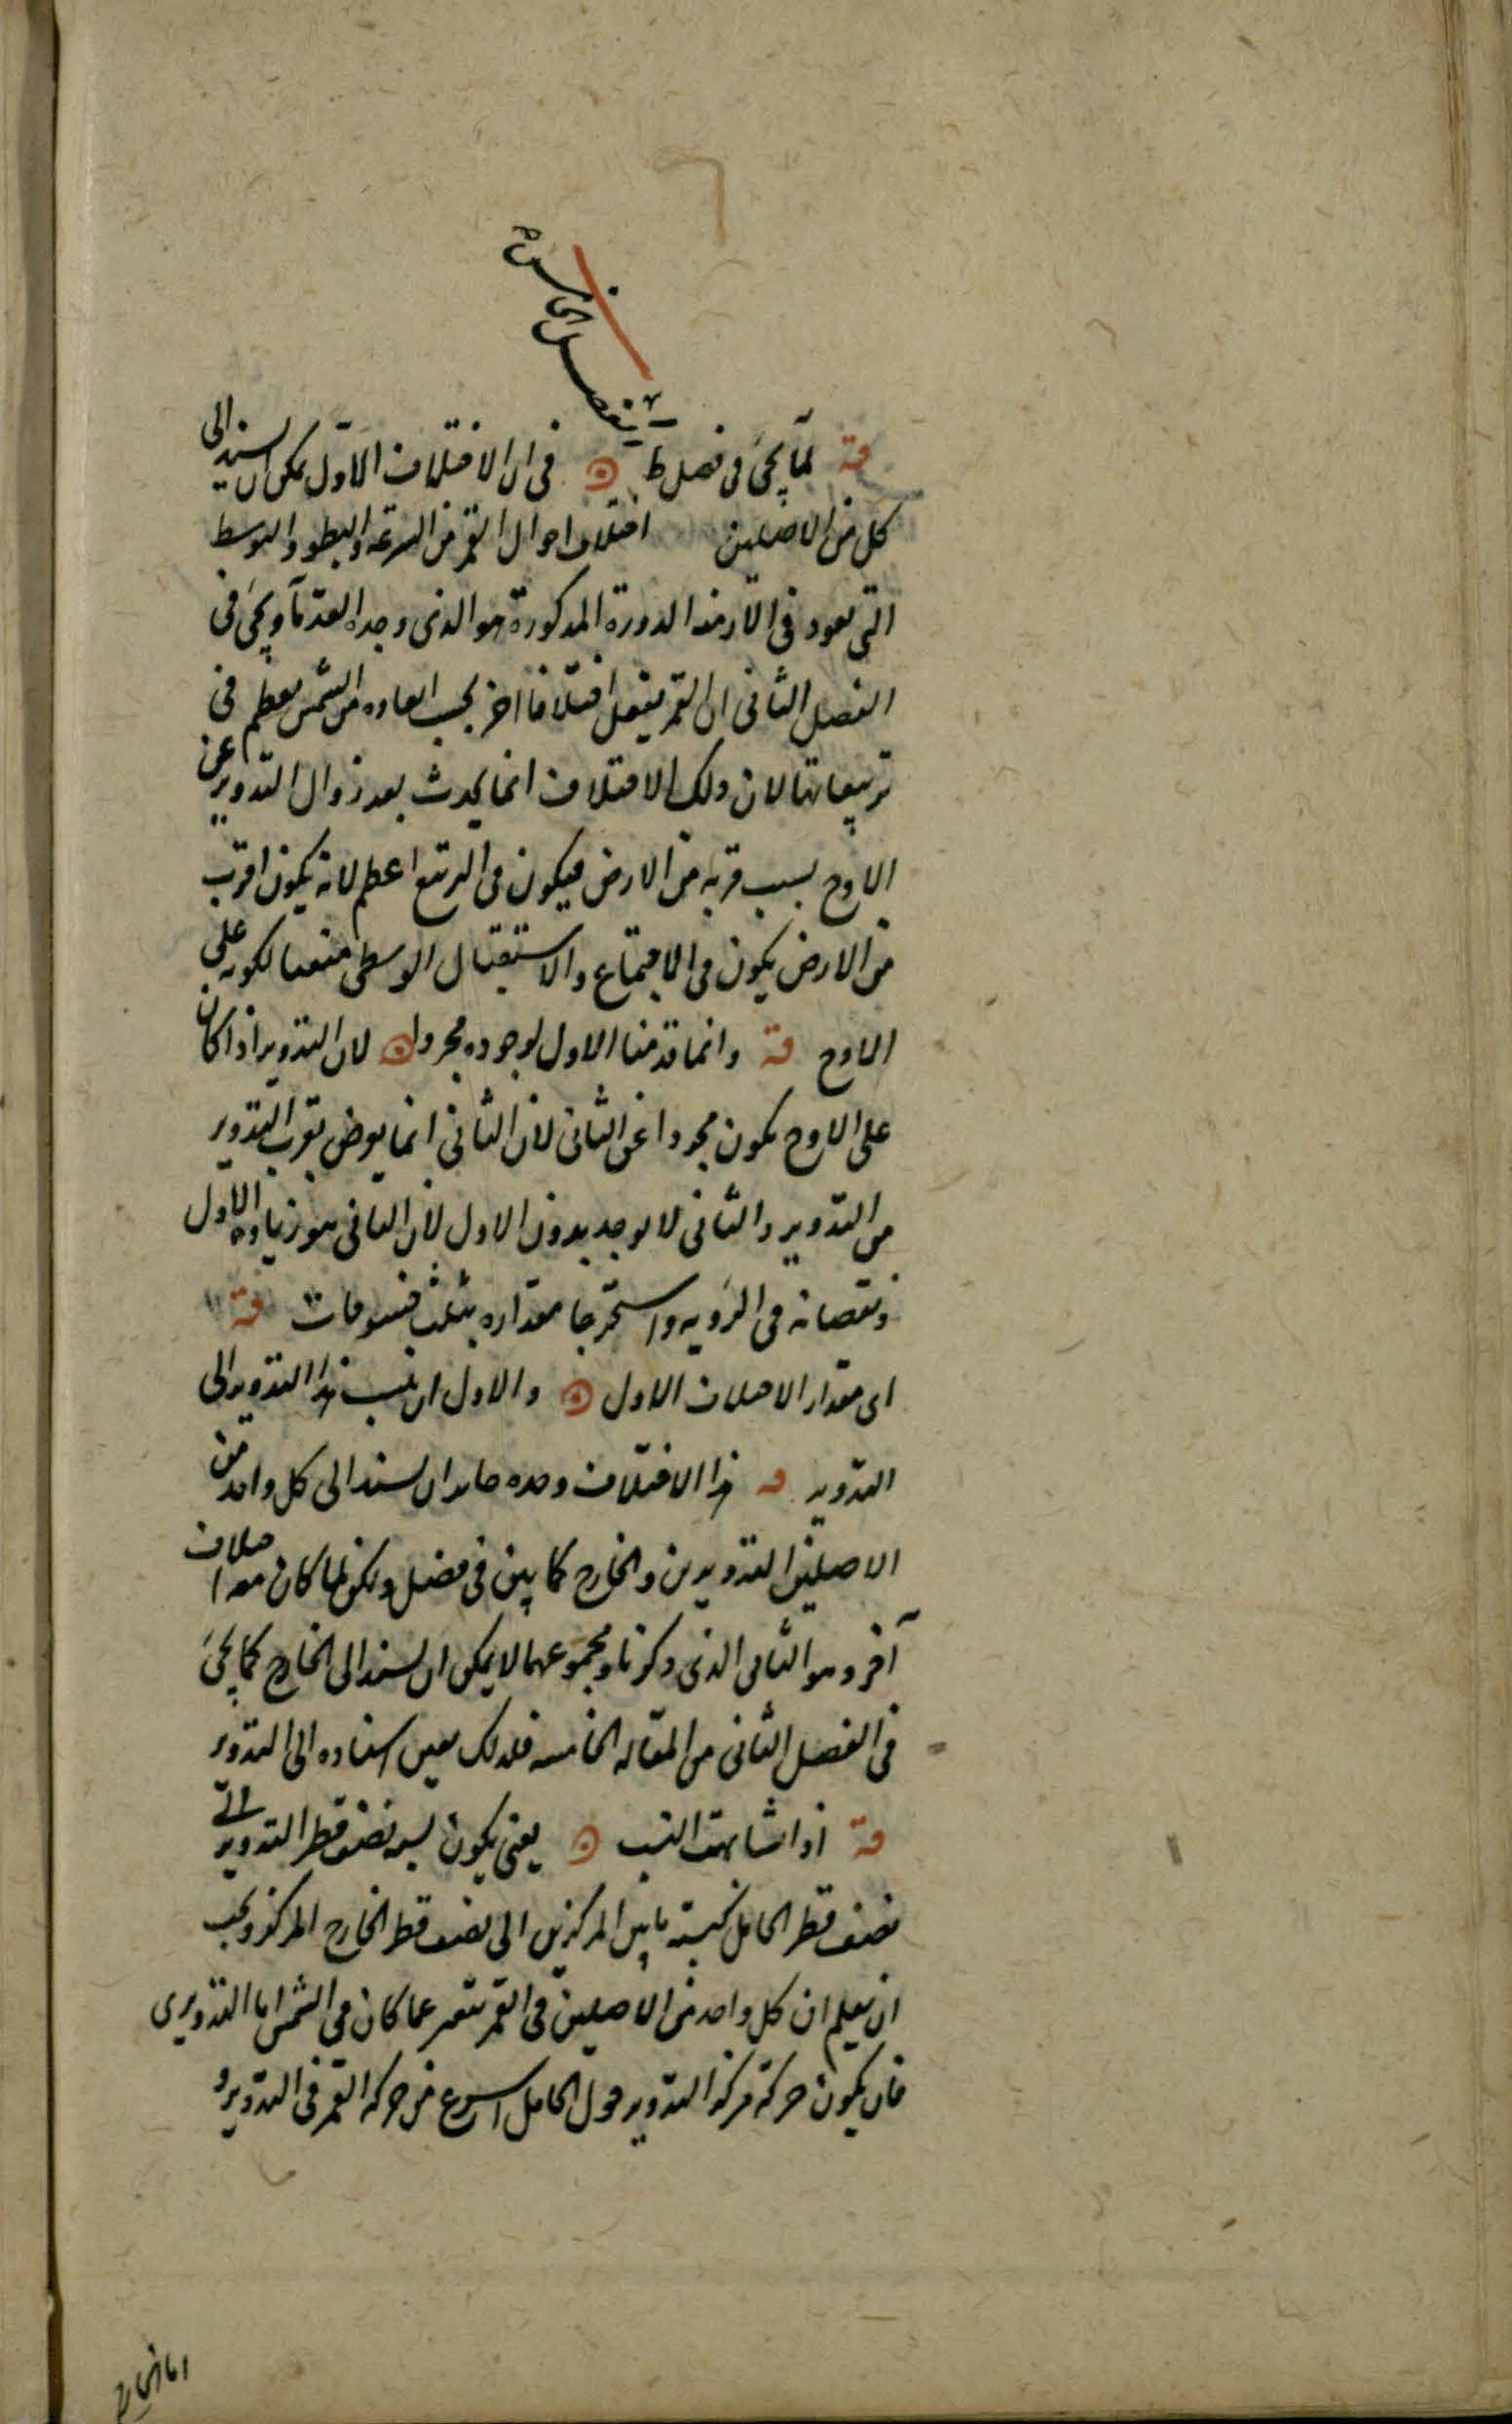 الفصل الخامس
قه لما يجئ فى فصل ط فى ان الاختلاف الاول يمكن ان يسند الى
كل من الاصلين اختلاف احوال القمر من السرعة والبطو والتوسط
التى تعود فى الازمنه الدورة المذكورة هو الذى وجده القدماء ويجئ فى
الفصل الثانى ان القمر يختلف اختلافا اخر بحسب ابعاده من الشمس يعظم فى
تربيعاتها لان ذلك الاختلاف انما يحدث بعد زوال التدوير عن
الاوج بسبب قربه من الارض فيكون فى التربيع اعظم لانه يكون اقرب
من الارض يكون فى الاجتماع والاستقبال الوسطى منتفيا لكونه على
الاوج قه وانما قدمنا الاول لوجوده مجردا لان التدوير اذا كان
على الاوج يكون مجردا عن الثانى لان الثانى انما يعرض بقرب التدوير
من التدوير والثانى لا يوجد بدون الاول لان الثانى هو زياده الاول
ونقصانه فى الرؤيه واستخرجا مقداره بثلث خسوفات قه
اى مقدار الاختلاف الاول والاول ان ينسب هذا التدوير الى
التدوير قه هذا الاختلاف وحده جاز ان يسند الى كل واحد من
الاصلين التدويرين والخارج كما بين فى فصل ولكن لما كان معه اختلاف
آخر وهو الثانى الذى ذكرنا ومجموعهما لا يمكن ان يسند الى الخارج كما يجئ
فى الفصل الثانى من المقاله الخامسه فلذلك يعين اسناده الى التدوير
قه اذا تشابهت النسب يعنى يكون نسبه نصف قطر التدوير الى
نصف قطر الحامل كنسبة ما بين المركزين الى نصف قطر الخارج المركز ويجب
ان يعلم ان كل واحد من الاصلين فى القمر يتغير عما كان فى الشمس اما التدويرى
فان يكون حركة مركز التدوير حول الحامل اسرع من حركه القمر فى التدوير و
اما الخارج